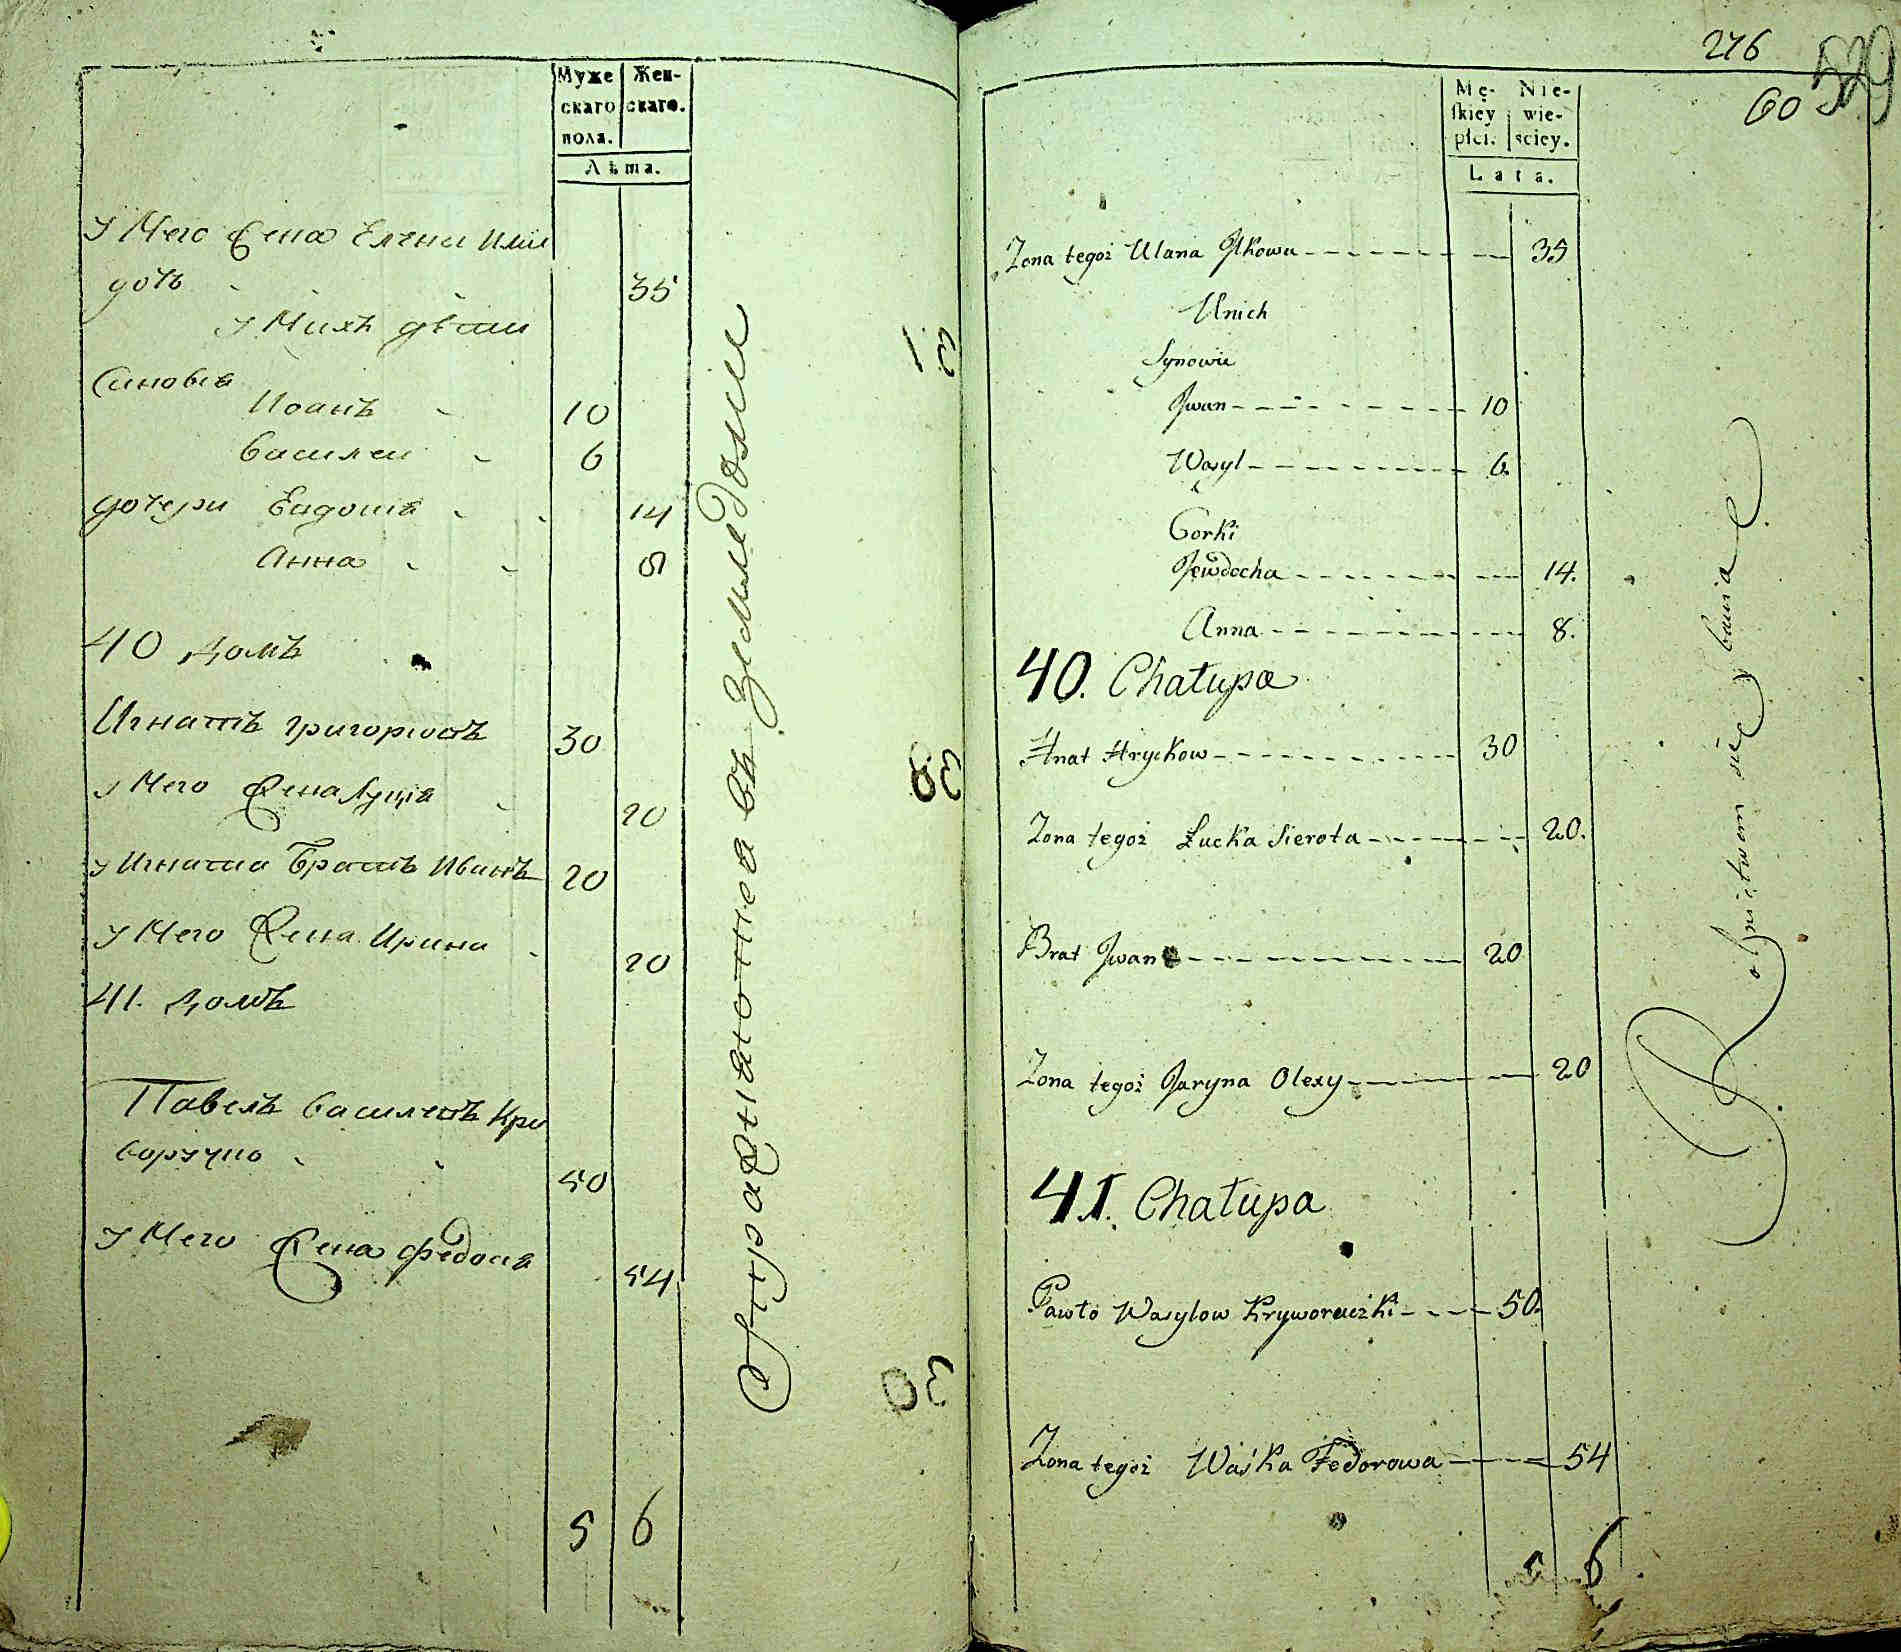 Муже
скаго
пола.
Жен-
скаго.
Лѣта.
у Него Жена Елена Или
дочь 35
у Нихъ дѣти
Синовья
Иоанъ 10
Василеи 6
дочери Евдокия 14
Анна 8
40 домъ
Игнатъ Григориевъ 30
у Него Жена Луция 20
у Игната Братъ Иванъ 20
у Него Жена Ирина 20
41. домъ
Павелъ Василевъ Кри
воручко 50
у Него Жена Федосия 54
5 6
Упражняются въ Земледелии
31
38
30
276
60
529
Mę-
skiey
płci.
Nie-
wie-
sciey.
Lata.
Zona tegoż Ulana Jlkowa 35
Unich
Synowie
Jwan 10
Wasyl 6.
Corki
Jewdocha 14.
Anna 8.
40. Chałupa
Hnat Hryckow 30
Zona tegoż Łucka Sierota 20.
Brat Jwan 20
Zona tegoż Jaryna Olexy 20
41. Chałupa
Pawło Wasylow Kryworuczki 50.
Zona tegoż Waśka Fedorowa 54
5 6
Rolnictwem się bawią